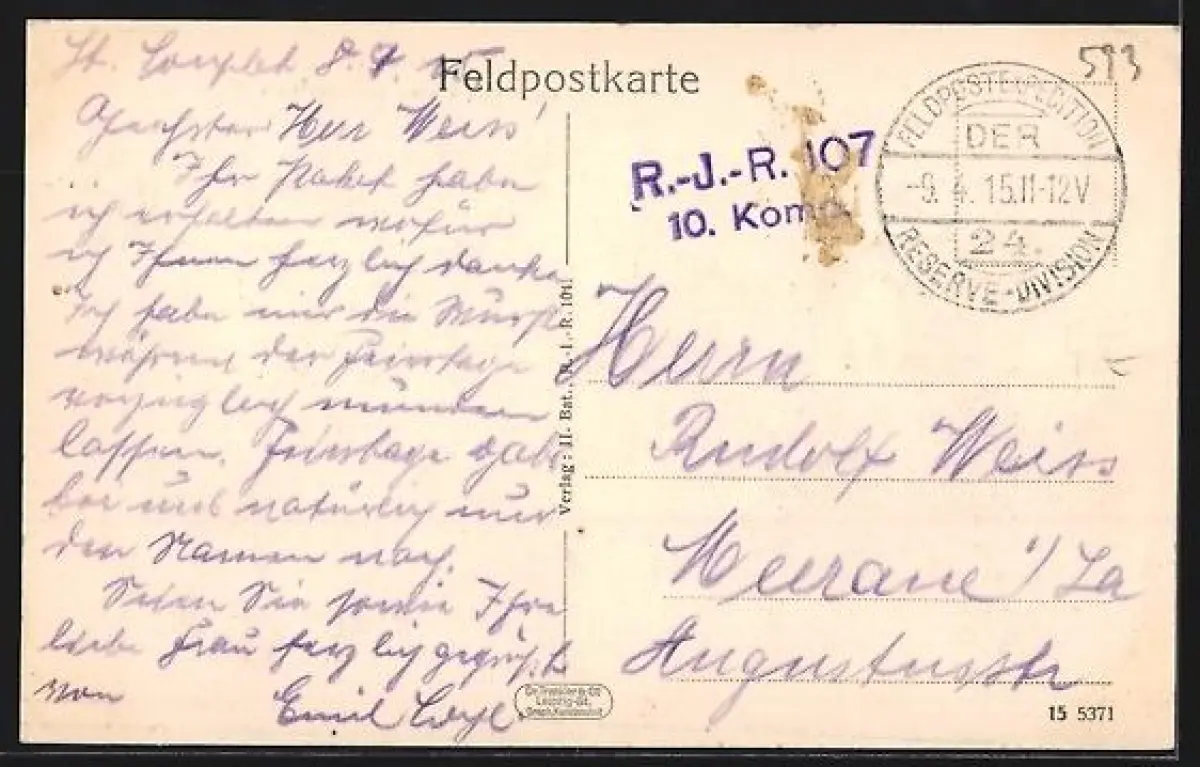 593
Feldpostkarte
8. 4. 15
Geehrter Herr Weiss!
Ihr Paket habe
ich erhalten wofür
ich Ihnen herzlich danke
Ich habe mir die Würste
während der Feiertage
vorzüglich munden
lassen. Feiertage gab
bei uns natürlich nur
den Namen nach.
Seien Sie sowie Ihre
liebe Frau herzlich gegrüßt
von
Emil
R.-J.-R. 107
10. Komp.
FELDPOSTEXPEDITION
DER
-9. 4. 15.11-12V
24.
RESERVE-DIVISION
Verlag: II. Bat., R.-I.-R. 104.
Herrn
Rudolf Weiss
Meerane i/Sa
Augustusstr
Dr. Trenkler & Co
Leipzig-St.
15 5371